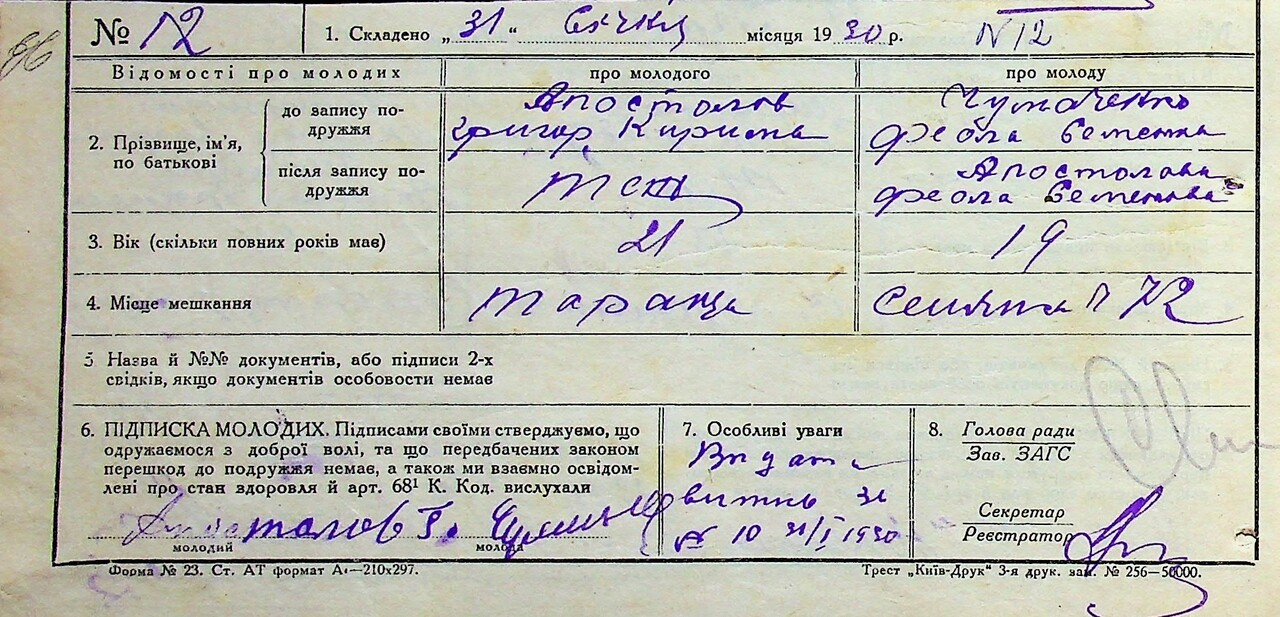 № 12
1. Складено „ 31 “ Січня місяця 1930 р. N 12
Відомості про молодих
про молодого
про молоду
2. Прізвище, ім’я, по батькові
до запису по-
дружжя
Апостолов
Григор Кирима
Чумаченко
Феола Семенва
після запису по-
дружжя
Апостолова
Феола Семенова
3. Вік (скільки повних років має)
21
19
4. Місце мешкання
Тараща
72
5 Назва й №№ документів, або підписи 2-х
свідків, якщо документів особовости немає
6. ПІДПИСКА МОЛОДИХ. Підписами своїми стверджуємо, що
одружаємося з доброї волі, та що передбачених законом
перешкод до подружжя немає, а також ми взаємно освідом-
лені про стан здоровля й арт. 68¹ К. Код. вислухали
Апостолов Г.
молодий молода
7. Особливі уваги
Видана
витяг за
№ 10 31/I 1930
8. Голова ради
Зав. ЗАГС
Секретар
Реєстратор
Форма № 23. Ст. АТ формат А₄—210х297.
Трест „Київ-Друк“ 3-я друк. зам. № 256—50000.